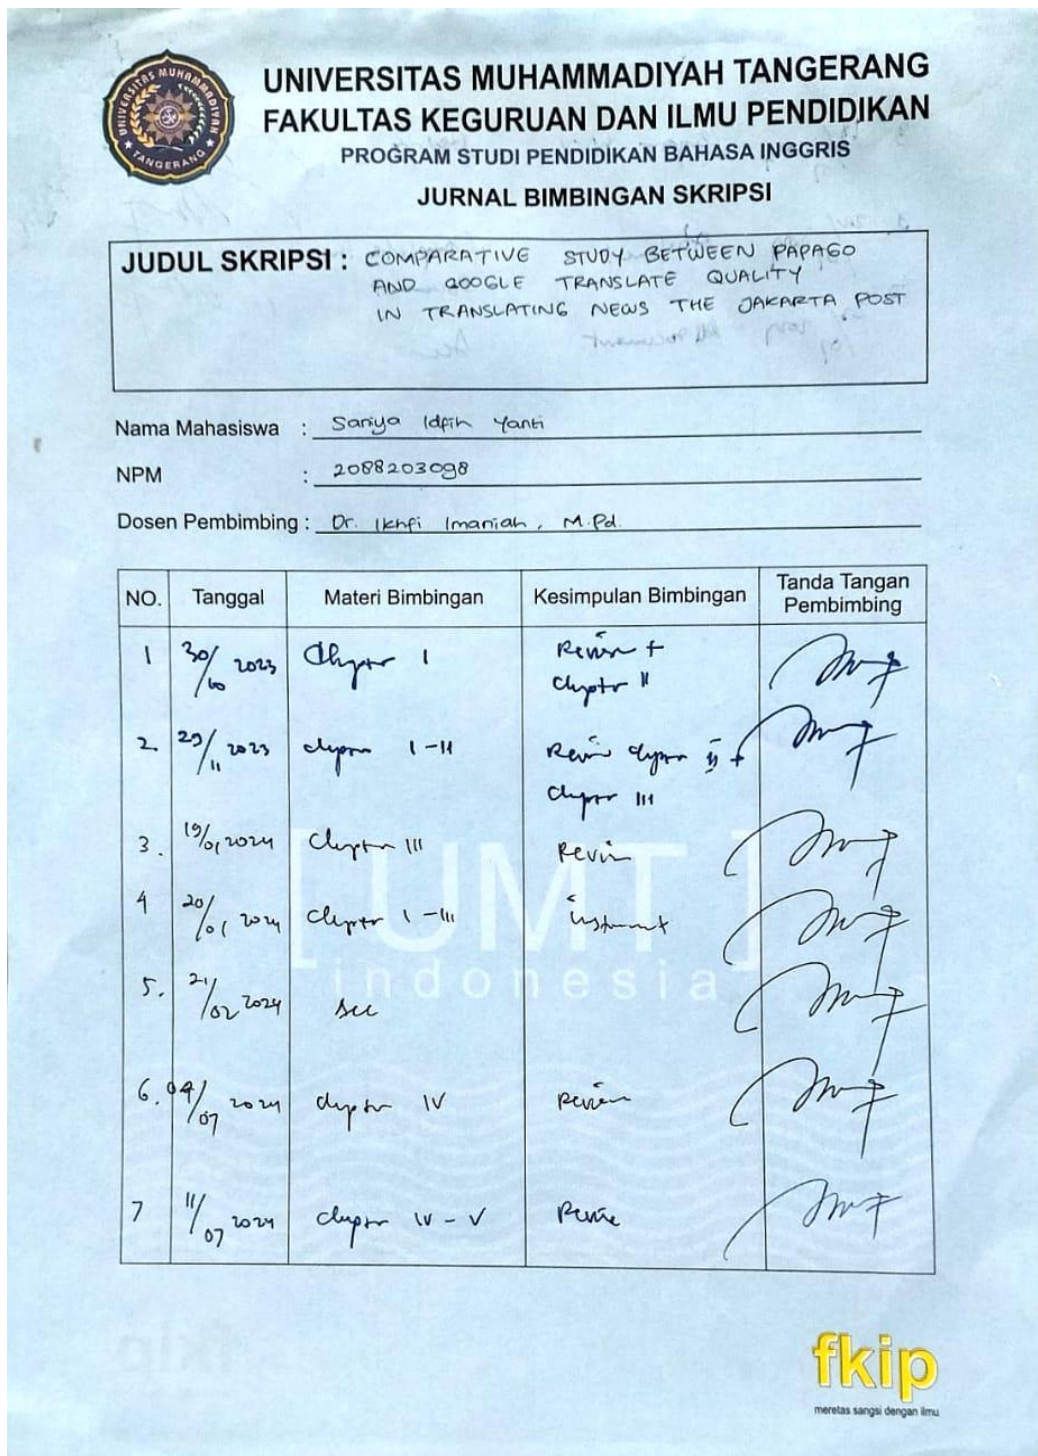 UNIVERSITAS MUHAMMADIYAH TANGERANG
FAKULTAS KEGURUAN DAN ILMU PENDIDIKAN
PROGRAM STUDI PENDIDIKAN BAHASA INGGRIS
JURNAL BIMBINGAN SKRIPSI
UNIVERSITAS MUHAMMADIYAH
TANGERANG
JUDUL SKRIPSI : COMPARATIVE STUDY BETWEEN PAPAGO
AND GOOGLE TRANSLATE QUALITY
IN TRANSLATING NEWS THE JAKARTA POST
Nama Mahasiswa : Sariya Idfih Yanti
NPM : 2088203098
Dosen Pembimbing : Dr. Ikhfi Imaniah, M.Pd.
NO. Tanggal Materi Bimbingan Kesimpulan Bimbingan Tanda Tangan Pembimbing
1 30/10 2023 Chapter I Revision + Chapter II
2. 29/11 2023 chapter I - II Revision chapter II + Chapter III
3. 19/01 2024 Chapter III Revision
4 20/01 2024 Chapter I - III instrument
5. 21/02 2024 acc
6. 04/07 2024 chapter IV Revision
7 11/07 2024 chapter IV - V Revise
[ UMT ]
indonesia
fkip
meretas sangsi dengan ilmu